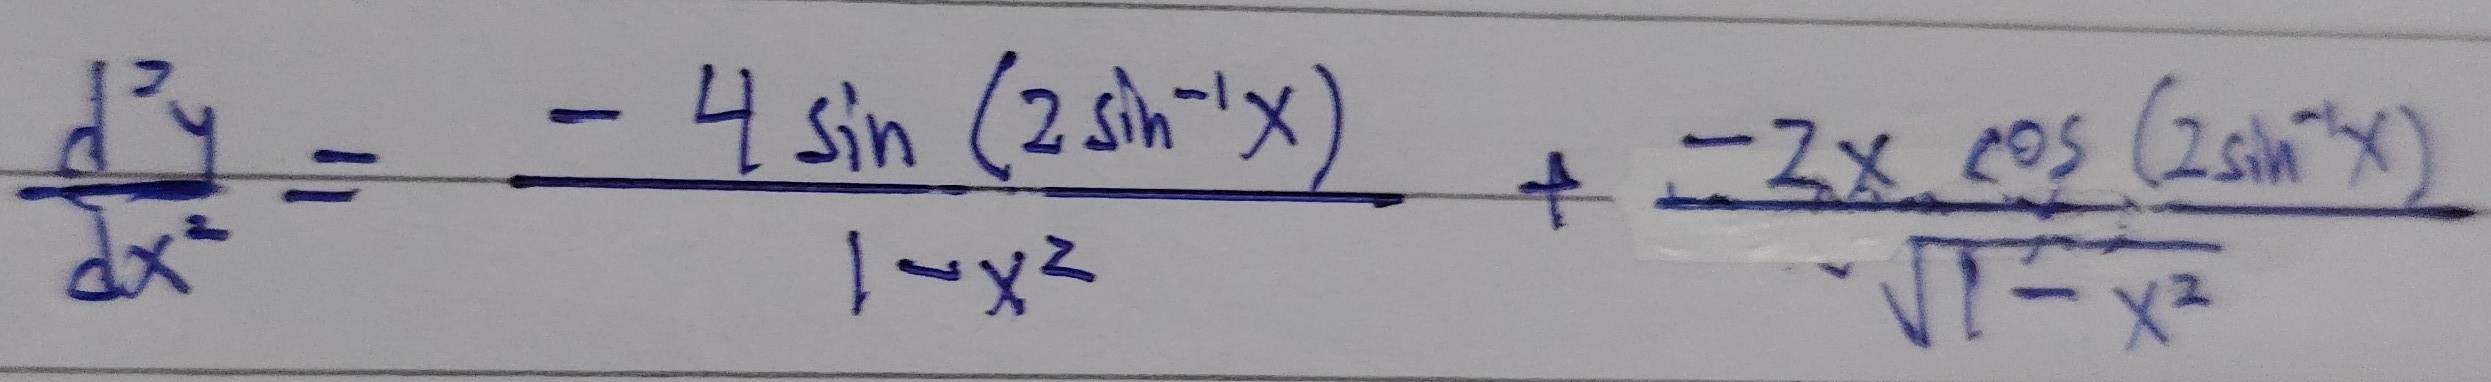 d²y/dx² = -4 sin (2 sin⁻¹x) / 1-x² + -2x cos (2 sin⁻¹x) / √1-x²